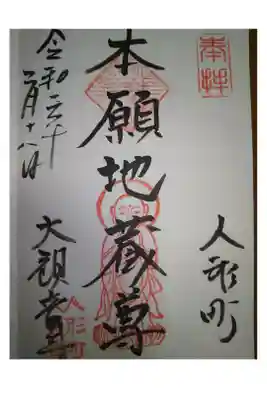 奉拝
人形町
本願地蔵尊
大観音寺
人形町
令和
月十八日